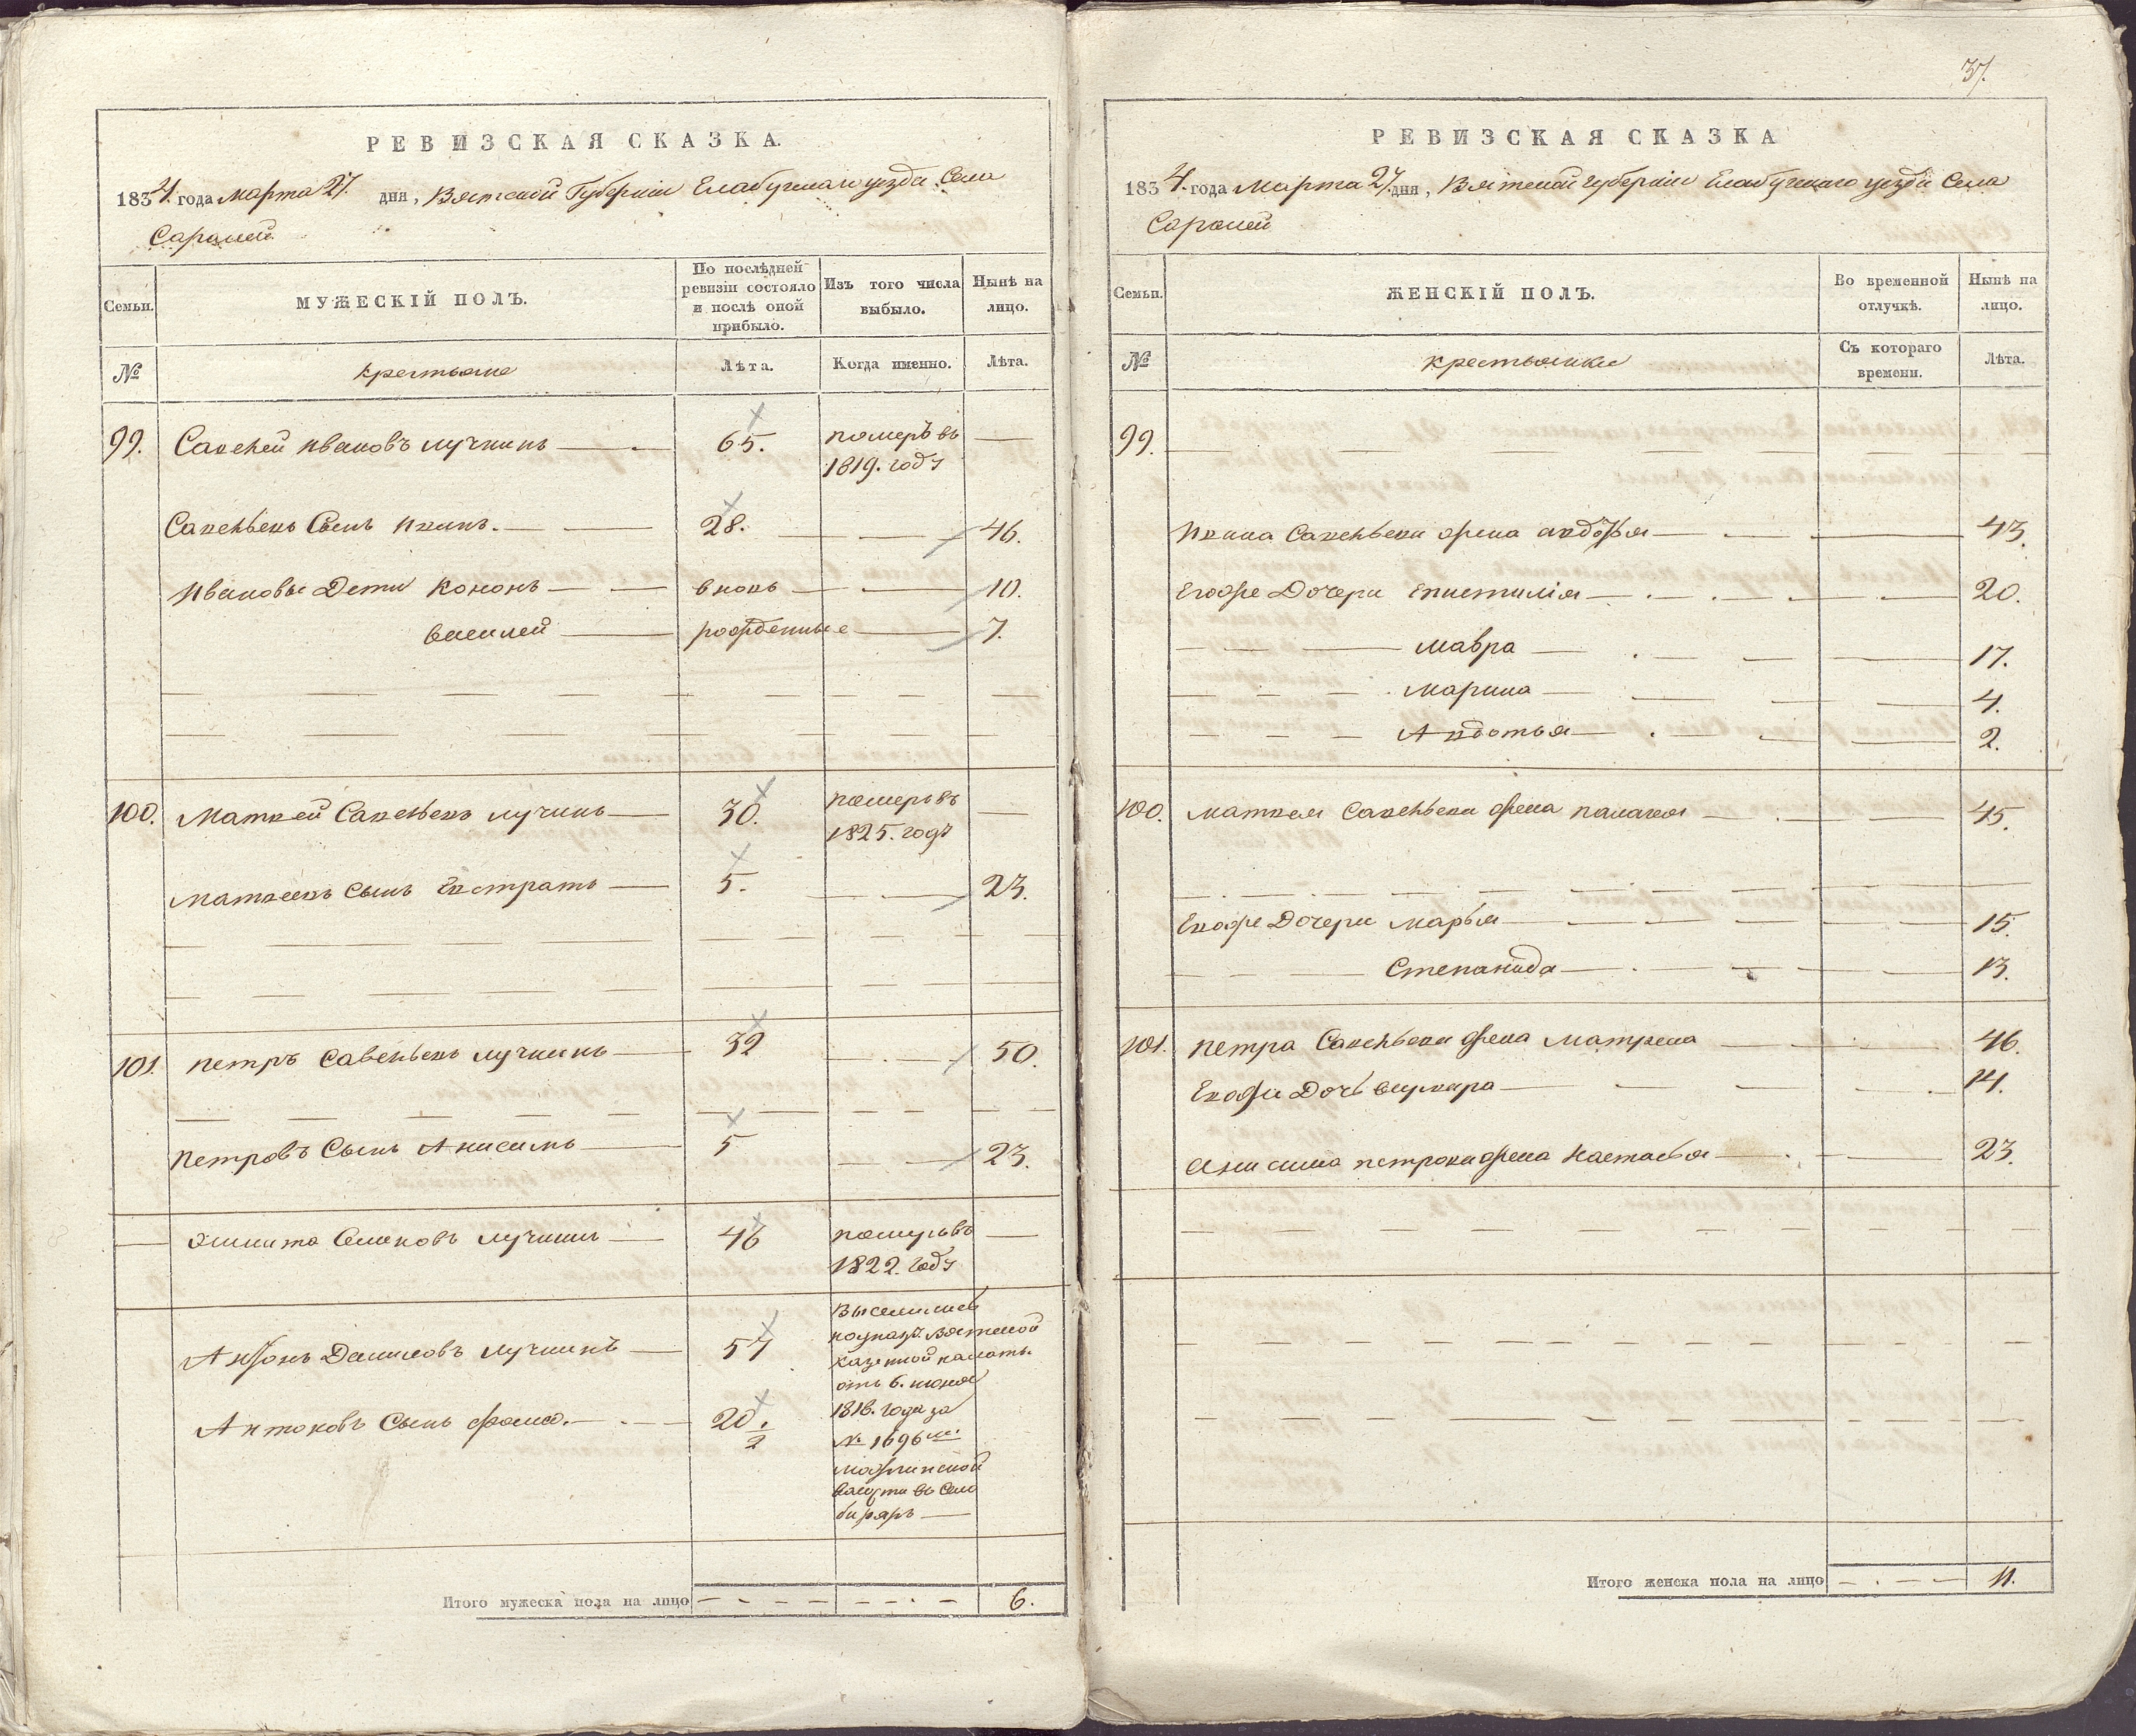 РЕВИЗСКАЯ СКАЗКА.
1834. года марта 27. дня, Вятской Губернiи Елабужскаго уезда Села
Саралей
Семьи.
МУЖЕСКIЙ ПОЛЪ.
По послѣдней ревизiи состояло и послѣ оной прибыло.
Изъ того числа выбыло.
Нынѣ на лицо.
№
крестьяне
Лѣта.
Когда именно.
Лѣта.
99. Савелей Ивановъ лучкинъ 65. померъ въ
1819. году
Савельевъ Сынъ 28. 46.
Ивановы Дети Кононъ вновь 10.
василей рожденные 7.
100. Матвей Савельевъ лучкинъ 30. померъ въ
1825. году
Матвеевъ Сынъ Евстратъ 5. 23.
101. петръ Савельевъ лучкинъ 32 50.
петровъ Сынъ Анисимъ 5 23.
Семеновъ лучкинъ 46 померъ въ
1822. году
Антонъ Даниловъ лучкинъ 57 выселился
по указу Вятской
казенной палаты
отъ 6. июня
Антоновъ Сынъ фома. 20. 1/2 1818. года за
№ 1696
волости въ
Итого мужеска пола на лицо 6.
37.
РЕВИЗСКАЯ СКАЗКА
1834. года Марта 27. дня, Вятской губернiи Елабужскаго уезда Села
Саралей
Семьи.
ЖЕНСКIЙ ПОЛЪ.
Во временной отлучкѣ.
Нынѣ на лицо.
№
крестьянки
Съ котораго времени.
Лѣта.
99.
Савельева жена авдотья 43.
Его же Дочери Епистилiя 20.
мавра 17.
марина 4.
Авдотья 2.
100. матвея Савельева жена палагея 45.
Ево же Дочери марья 15.
Степанида 13.
101. петра Савельева жена матрена 46.
Ево же Дочь 14.
Анисима петрова жена настасья 23.
Итого женска пола на лицо 11.